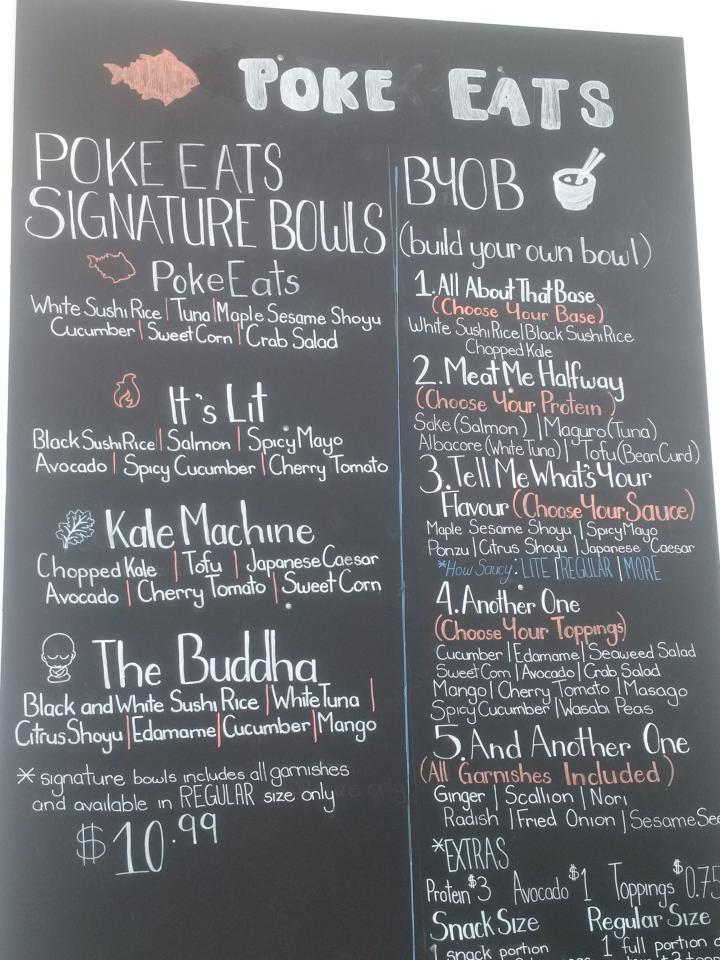 POKE EATS
POKE EATS
SIGNATURE BOWLS
Poke Eats
White Sushi Rice | Tuna | Maple Sesame Shoyu
Cucumber | Sweet Corn | Crab Salad
It's Lit
Black Sushi Rice | Salmon | Spicy Mayo
Avocado | Spicy Cucumber | Cherry Tomato
Kale Machine
Chopped Kale | Tofu | Japanese Caesar
Avocado | Cherry Tomato | Sweet Corn
The Buddha
Black and White Sushi Rice | White Tuna |
Citrus Shoyu | Edamame | Cucumber | Mango
* signature bowls includes all garnishes
and available in REGULAR size only
$10.99
BYOB
(build your own bowl)
1. All About That Base
(Choose Your Base)
White Sushi Rice | Black Sushi Rice
Chopped Kale
2. Meat Me Halfway
(Choose Your Protein)
Sake (Salmon) | Maguro (Tuna)
Albacore (White Tuna) | Tofu (Bean Curd)
3. Tell Me What's Your
Flavour (Choose Your Sauce)
Maple Sesame Shoyu | Spicy Mayo
Ponzu | Citrus Shoyu | Japanese Caesar
*How Saucy: LITE | REGULAR | MORE
4. Another One
(Choose Your Toppings)
Cucumber | Edamame | Seaweed Salad
Sweet Corn | Avocado | Crab Salad
Mango | Cherry Tomato | Masago
Spicy Cucumber | Wasabi Peas
5. And Another One
(All Garnishes Included)
Ginger | Scallion | Nori
Radish | Fried Onion | Sesame See
*EXTRAS
Protein $3 Avocado $1 Toppings $0.75
Snack Size Regular Size
1 snack portion 1 full portion